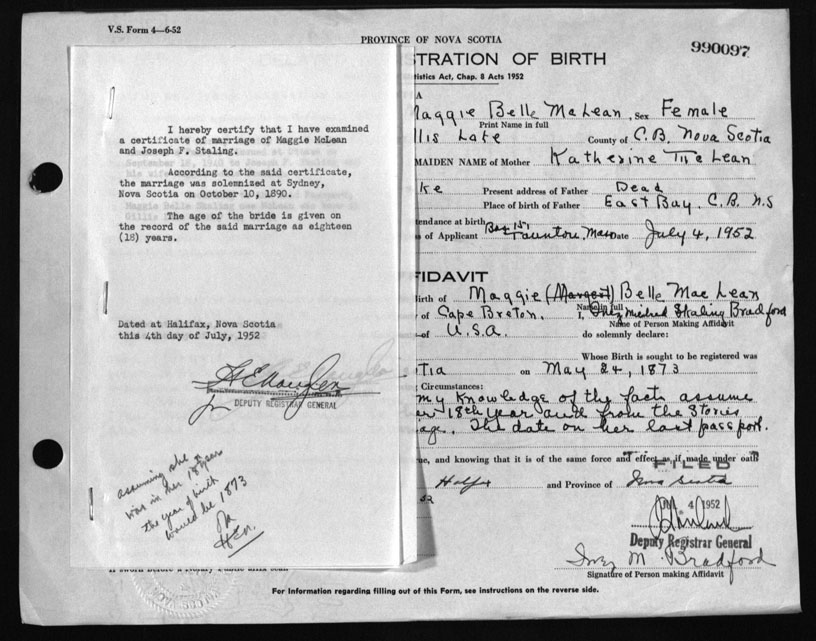 V.S. Form 4—6-52
PROVINCE OF NOVA SCOTIA
990097
STRATION OF BIRTH
tistics Act, Chap. 8 Acts 1952
I hereby certify that I have examined
a certificate of marriage of Maggie McLean
and Joseph F. Staling.
According to the said certificate,
the marriage was solemnized at Sydney,
Nova Scotia on October 10, 1890.
The age of the bride is given on
the record of the said marriage as eighteen
(18) years.
Dated at Halifax, Nova Scotia
this 4th day of July, 1952
DEPUTY REGISTRAR GENERAL
assuming she
was in her 18 years
the year of birth
would be 1873
aggie Belle MacLean, Sex Female
Print Name in full
llis Lake County of C.B. Nova Scotia
MAIDEN NAME of Mother Katherine Mc Lean
ke Present address of Father Dead
Place of birth of Father East Bay, C.B. N.S
tendance at birth
s of Applicant Box 151 Taunton, Mass Date July 4, 1952
FIDAVIT
irth of Maggie (Margeret) Belle Mac Lean
Name in full
of Cape Breton. I, Inez Mildred Staling Bradford
Name of Person Making Affidavit
of U.S.A. do solemnly declare:
Whose Birth is sought to be registered was
tia on May 24, 1873
Circumstances:
my knowledge of the facts assume
er 18th year and from the stories
age. The date on her last passport.
ue, and knowing that it is of the same force and effect as if made under oath
FILED
Halfx and Province of Nova Scotia
52
4 1952
Deputy Registrar General
Inez M. Bradford
Signature of Person making Affidavit
For Information regarding filling out of this Form, see instructions on the reverse side.